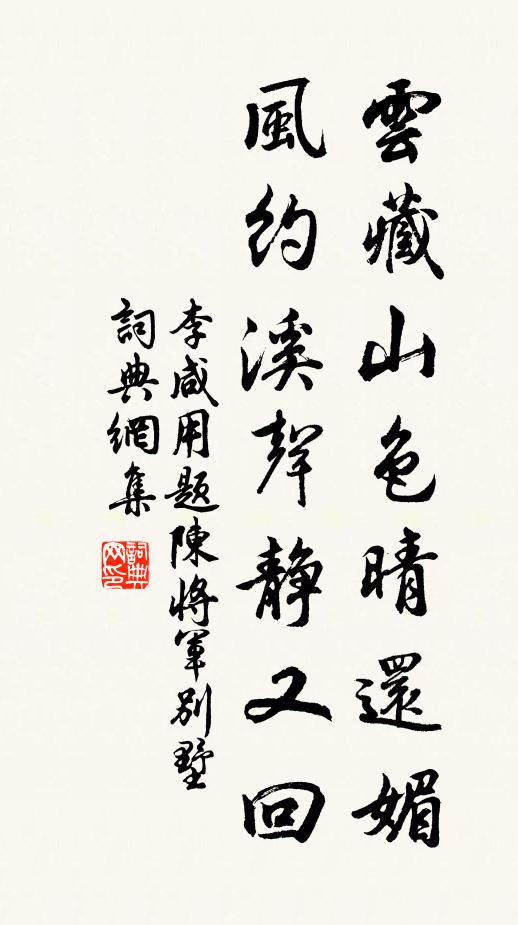 雲藏山色晴還媚
風約溪聲靜又回
李咸用題陳將軍別墅
詞典網集
詞典
网印